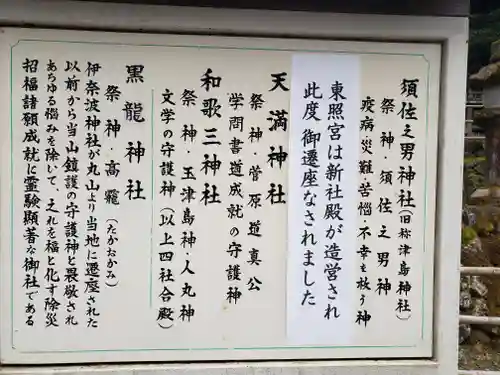 須佐之男神社(旧称津島神社)
祭神・須佐之男神
疫病・災難・苦悩・不幸を救う神
東照宮は新社殿が造営され
此度 御遷座なされました
天満神社
祭神・菅原道真公
学問書道成就の守護神
和歌三神社
祭神・玉津島神・人丸神
文学の守護神(以上四社合殿)
黒龍神社
祭神・高龗(たかおかみ)
伊奈波神社が丸山より当地に遷座された
以前から当山鎮護の守護神と畏敬され
あらゆる悩みを除いて、之れを福と化す除災
招福諸願成就に霊験顕著な御社である